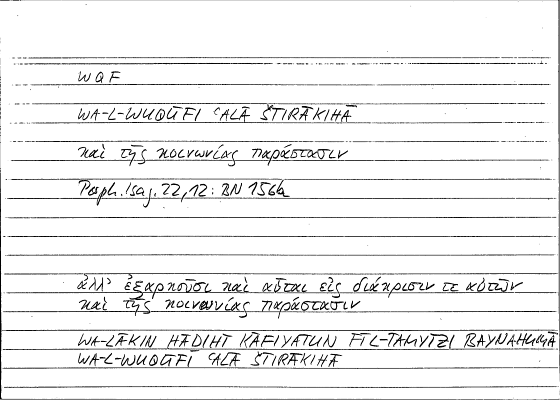 WQF
WA-L-WUQŪFI ʿALĀ ŠTIRĀKIHĀ
καὶ τῆς κοινωνίας παράστασιν
Porph. Isag. 22, 12: BN 156a
ἀλλ' ἐξαρκοῦσι καὶ αὗται εἰς διάκρισιν τε αὐτῶν
καὶ τῆς κοινωνίας παράστασιν
WA-LĀKIN HĀḎIHĪ KĀFIYATUN FĪ L-TAMYĪZI BAYNAHUMĀ
WA-L-WUQŪFI ʿALĀ ŠTIRĀKIHĀ